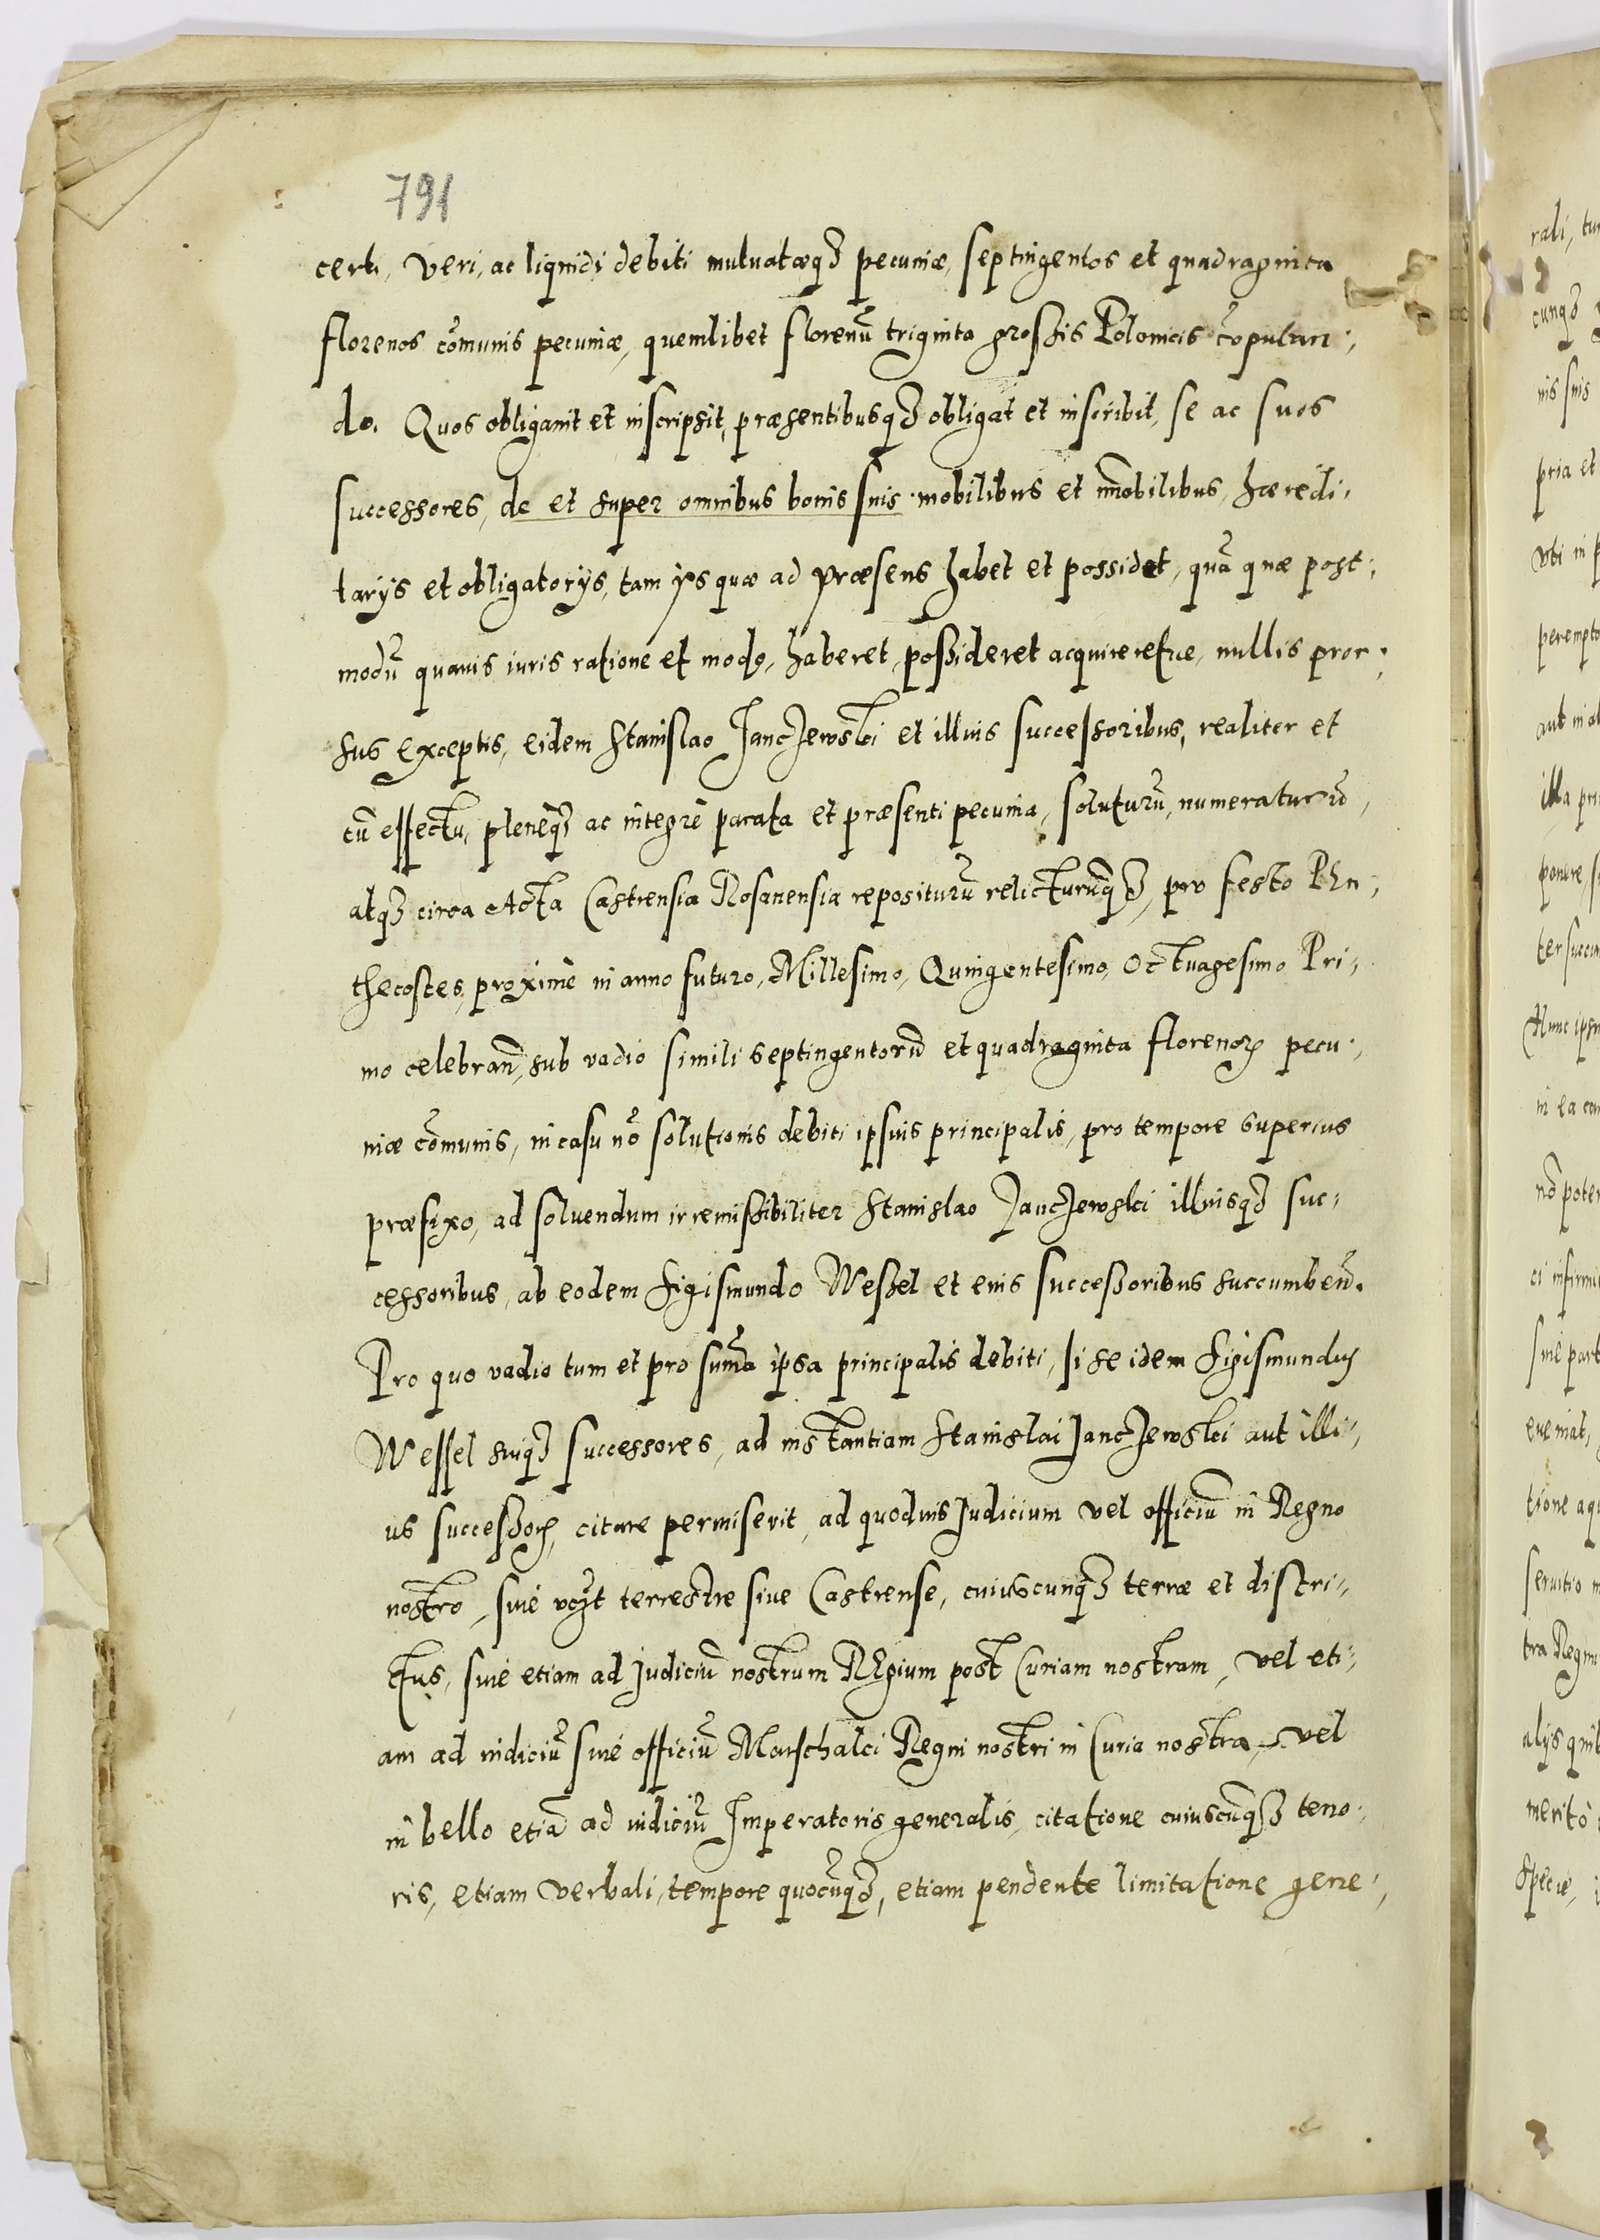 791
certi, veri, ac liquidi debiti mutuatæq₃ pecuniæ, septingentos et quadraginta
florenos cõmunis pecuniæ, quemlibet florenũ triginta grossis Polonicis cõputan-
do. Quos obligauit et inscripsit, præsentibusq₃ obligat et inscribit, se ac suos
successores, de et super omnibus bonis suis mobilibus et im̃obilibus, hæredi-
tarijs et obligatorijs, tam ijs quæ ad præsens habet et possidet, quã quæ post-
modũ quauis iuris ratione et modo, haberet, possideret acquireretue, nullis pror-
sus exceptis, eidem Stanislao Janczewski et illius successoribus, realiter et
cũ effectu, pleneq₃ ac integrè parata et præsenti pecunia, soluturũ, numeraturũ,
atq₃ circa Acta Castrensia Rosanensia repositurũ relicturũq₃, pro festo Pen-
thecostes, proximè in anno futuro, Millesimo, Quingentesimo, Octuagesimo Pri-
mo celebrañ, sub vadio simili septingentorũ et quadraginta florenoꝝ pecu-
niæ cõmunis, in casu nõ solutionis debiti ipsius principalis, pro tempore superius
præfixo, ad soluendum irremissibiliter Stanislao Janczewski illiusq₃ suc-
cessoribus, ab eodem Sigismundo Wessel et eius successoribus succumbeñ.
Pro quo vadio tum et pro sum̃a ipsa principalis debiti, si se idem Sigismundus
Wessel suiq₃ successores, ad instantiam Stanislai Janczewski aut illi-
us successoꝝ, citare permiserit, ad quoduis Judicium vel officiũ in Regno
nostro, siue terrestre siue Castrense, cuiuscunq₃ terræ et distri-
ctus, siue etiam ad Judiciũ nostrum Regium post Curiam nostram, vel eti-
am ad iudiciũ siue officiũ Marschalci Regni nostri in Curia nostra, vel
in bello etiã ad iudiciũ Imperatoris generalis, citatione cuiuscũq₃ teno-
ris, etiam verbali, tempore quocũq₃, etiam pendente limitatione gene-